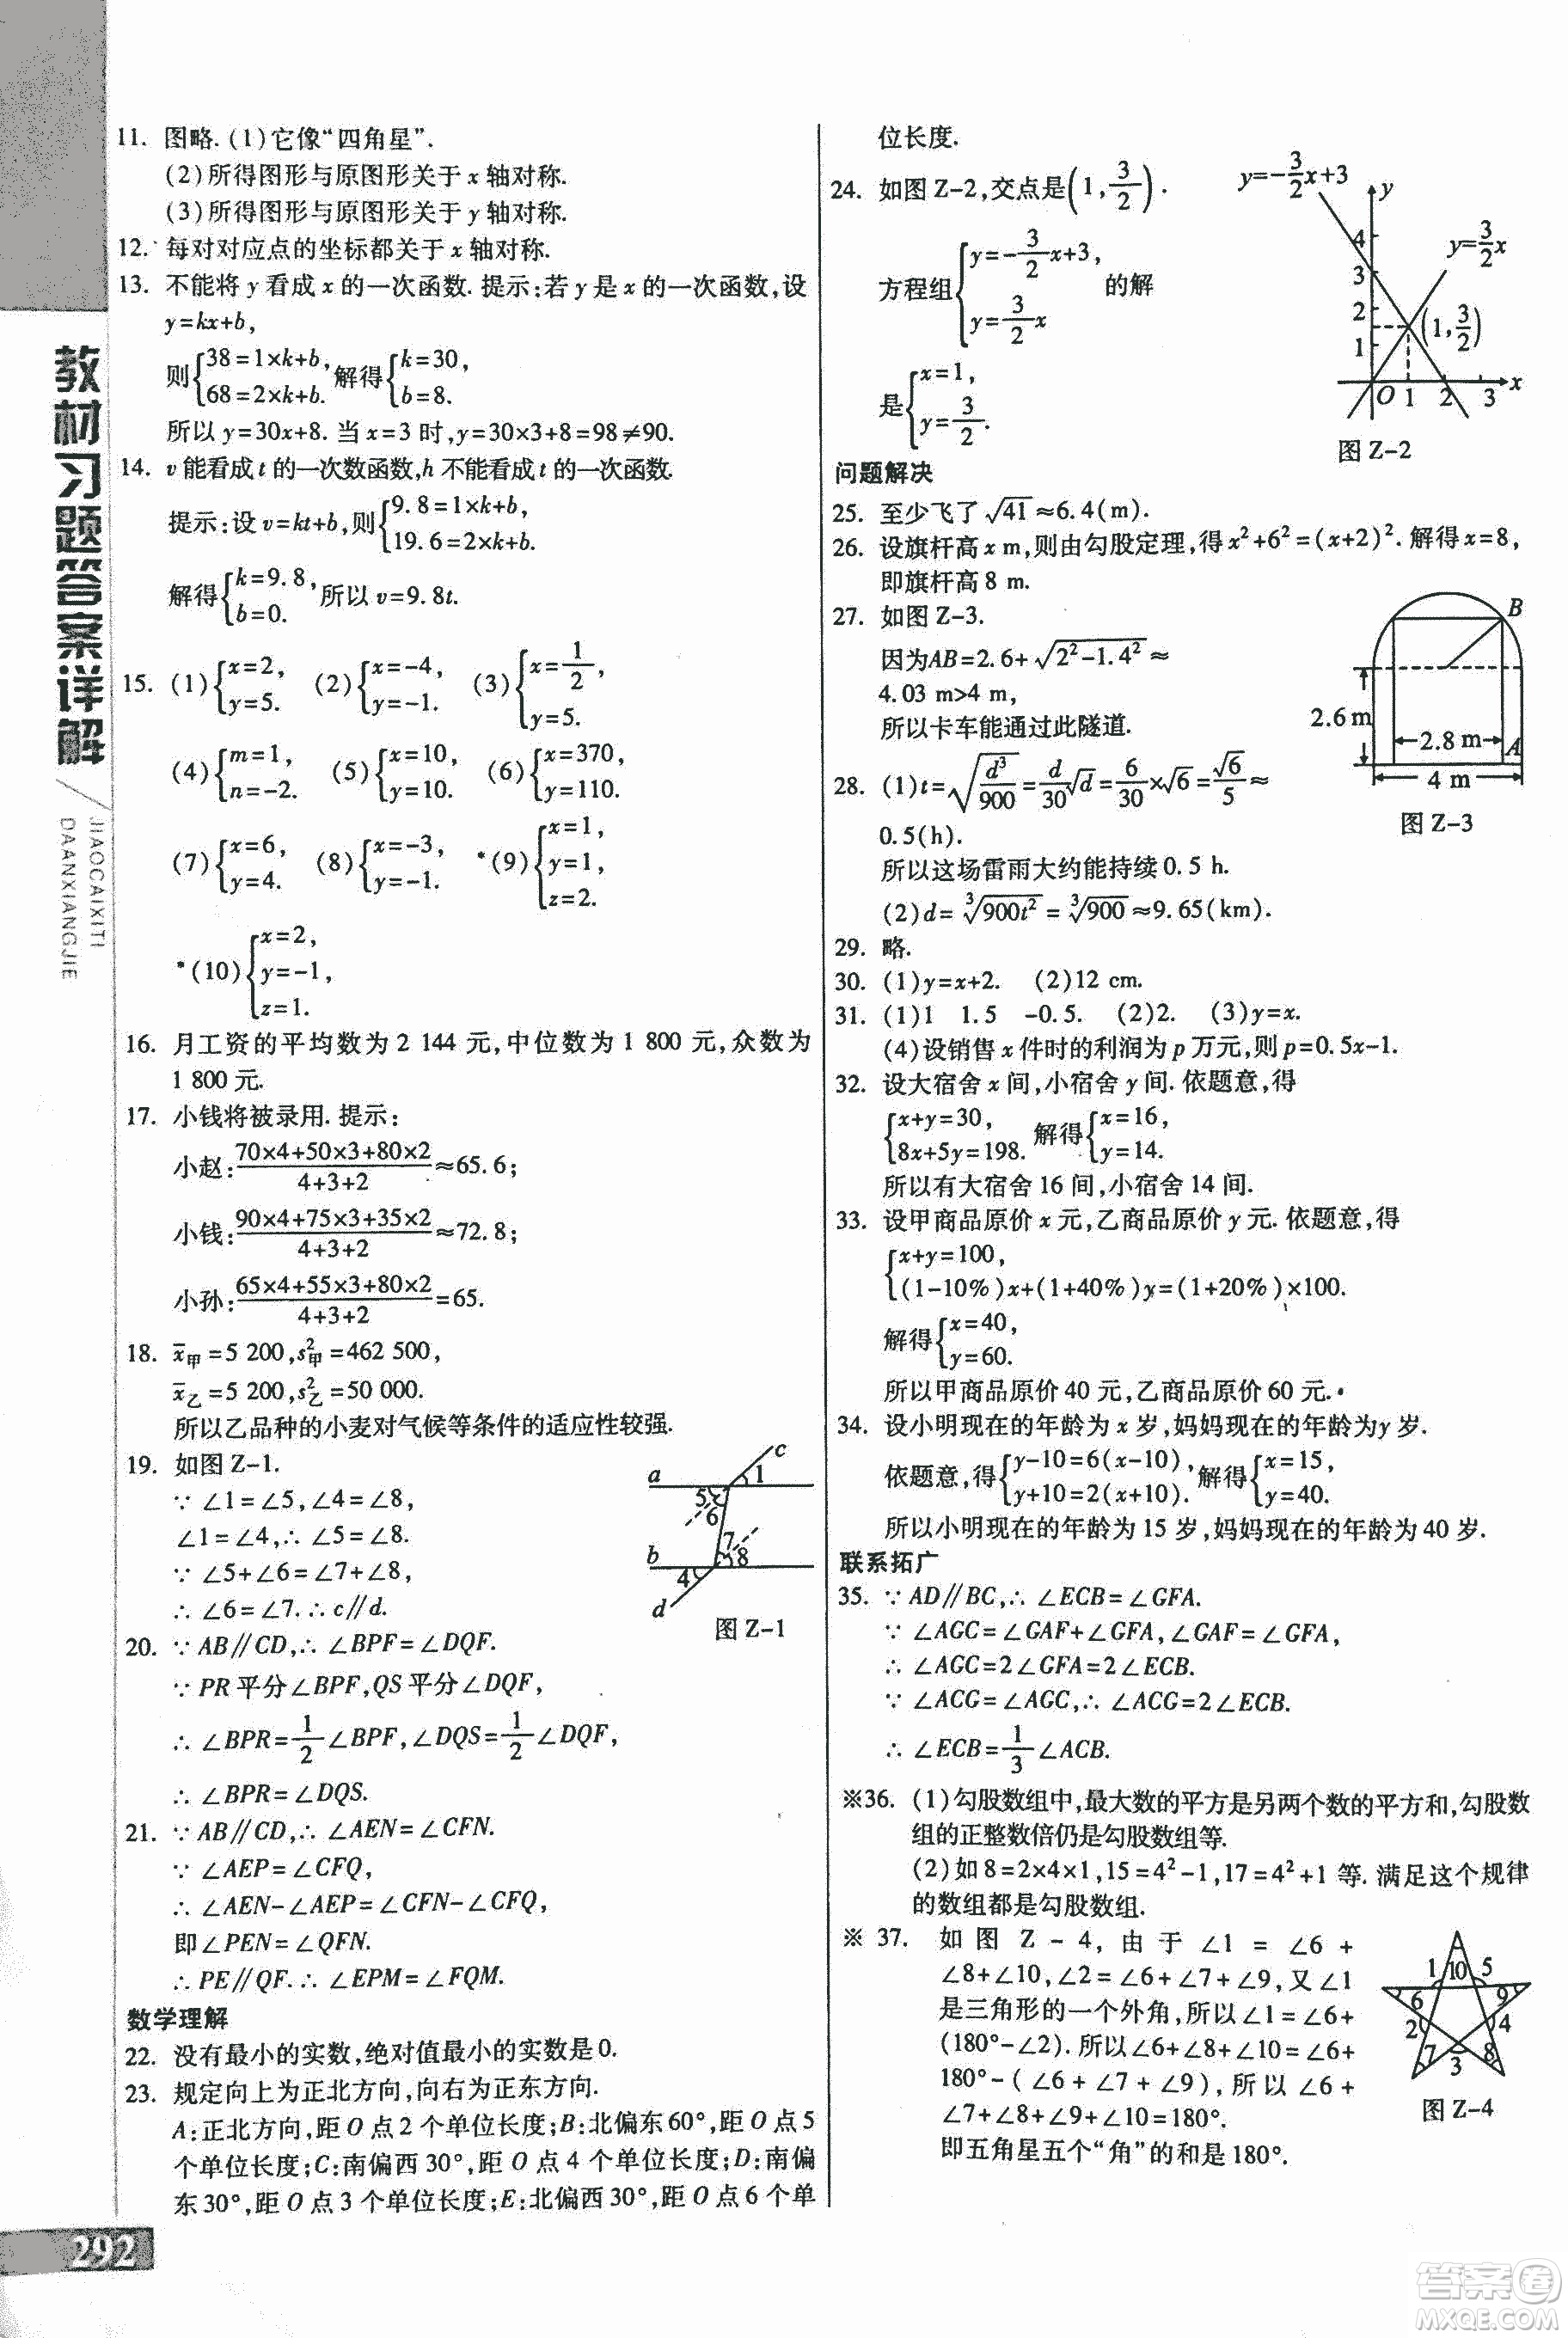 教材习题答案详解
JIAOCAIXITI
DAANXIANGJIE
11. 图略. (1)它像“四角星”.
(2)所得图形与原图形关于 x 轴对称.
(3)所得图形与原图形关于 y 轴对称.
12. 每对对应点的坐标都关于 x 轴对称.
13. 不能将 y 看成 x 的一次函数. 提示:若 y 是 x 的一次函数,设
y=kx+b,
则{38=1×k+b, 68=2×k+b. 解得{k=30, b=8.
所以 y=30x+8. 当 x=3 时,y=30×3+8=98≠90.
14. v 能看成 t 的一次数函数,h 不能看成 t 的一次函数.
提示:设 v=kt+b,则{9.8=1×k+b, 19.6=2×k+b.
解得{k=9.8, b=0. 所以 v=9.8t.
15. (1){x=2, y=5. (2){x=-4, y=-1. (3){x=1/2, y=5.
(4){m=1, n=-2. (5){x=10, y=10. (6){x=370, y=110.
(7){x=6, y=4. (8){x=-3, y=-1. *(9){x=1, y=1, z=2.
*(10){x=2, y=-1, z=1.
16. 月工资的平均数为 2 144 元,中位数为 1 800 元,众数为
1 800 元.
17. 小钱将被录用. 提示:
小赵:(70×4+50×3+80×2)/(4+3+2)≈65.6;
小钱:(90×4+75×3+35×2)/(4+3+2)≈72.8;
小孙:(65×4+55×3+80×2)/(4+3+2)=65.
18. x̄甲=5 200,s²甲=462 500,
x̄乙=5 200,s²乙=50 000.
所以乙品种的小麦对气候等条件的适应性较强.
19. 如图 Z-1.
∵ ∠1=∠5,∠4=∠8,
∠1=∠4,∴ ∠5=∠8.
∵ ∠5+∠6=∠7+∠8,
∴ ∠6=∠7. ∴ c∥d.
a b c d 1 5 6 7 8 4
图 Z-1
20. ∵ AB∥CD,∴ ∠BPF=∠DQF.
∵ PR 平分∠BPF,QS 平分∠DQF,
∴ ∠BPR=1/2∠BPF,∠DQS=1/2∠DQF,
∴ ∠BPR=∠DQS.
21. ∵ AB∥CD,∴ ∠AEN=∠CFN.
∵ ∠AEP=∠CFQ,
∴ ∠AEN-∠AEP=∠CFN-∠CFQ,
即∠PEN=∠QFN.
∴ PE∥QF. ∴ ∠EPM=∠FQM.
数学理解
22. 没有最小的实数,绝对值最小的实数是 0.
23. 规定向上为正北方向,向右为正东方向.
A:正北方向,距 O 点 2 个单位长度;B:北偏东 60°,距 O 点 5
个单位长度;C:南偏西 30°,距 O 点 4 个单位长度;D:南偏
东 30°,距 O 点 3 个单位长度;E:北偏西 30°,距 O 点 6 个单
292
位长度.
24. 如图 Z-2,交点是(1,3/2).
方程组{y=-3/2x+3, y=3/2x 的解
是{x=1, y=3/2.
y=-3/2x+3 y
y=3/2x
4
3
2
1
(1,3/2)
O 1 2 3 x
图 Z-2
问题解决
25. 至少飞了 √41≈6.4(m).
26. 设旗杆高 x m,则由勾股定理,得 x²+6²=(x+2)². 解得 x=8,
即旗杆高 8 m.
27. 如图 Z-3.
因为AB=2.6+√(2²-1.4²)≈
4.03 m>4 m,
所以卡车能通过此隧道.
B
2.6 m
2.8 m A
4 m
图 Z-3
28. (1)t=√(d³/900)=d/30√d=6/30×√6=√6/5≈
0.5(h).
所以这场雷雨大约能持续 0.5 h.
(2)d=∛(900t²)=∛900≈9.65(km).
29. 略.
30. (1)y=x+2. (2)12 cm.
31. (1)1 1.5 -0.5. (2)2. (3)y=x.
(4)设销售 x 件时的利润为 p 万元,则 p=0.5x-1.
32. 设大宿舍 x 间,小宿舍 y 间. 依题意,得
{x+y=30, 8x+5y=198. 解得{x=16, y=14.
所以有大宿舍 16 间,小宿舍 14 间.
33. 设甲商品原价 x 元,乙商品原价 y 元. 依题意,得
{x+y=100, (1-10%)x+(1+40%)y=(1+20%)×100.
解得{x=40, y=60.
所以甲商品原价 40 元,乙商品原价 60 元.
34. 设小明现在的年龄为 x 岁,妈妈现在的年龄为y 岁.
依题意,得{y-10=6(x-10), y+10=2(x+10). 解得{x=15, y=40.
所以小明现在的年龄为 15 岁,妈妈现在的年龄为 40 岁.
联系拓广
35. ∵ AD∥BC,∴ ∠ECB=∠GFA.
∵ ∠AGC=∠GAF+∠GFA,∠GAF=∠GFA,
∴ ∠AGC=2∠GFA=2∠ECB.
∵ ∠ACG=∠AGC,∴ ∠ACG=2∠ECB.
∴ ∠ECB=1/3∠ACB.
※36. (1)勾股数组中,最大数的平方是另两个数的平方和,勾股数
组的正整数倍仍是勾股数组等.
(2)如 8=2×4×1,15=4²-1,17=4²+1 等. 满足这个规律
的数组都是勾股数组.
※ 37. 如图 Z-4,由于∠1=∠6+
∠8+∠10,∠2=∠6+∠7+∠9,又∠1
是三角形的一个外角,所以∠1=∠6+
(180°-∠2). 所以∠6+∠8+∠10=∠6+
180°-(∠6+∠7+∠9),所以∠6+
∠7+∠8+∠9+∠10=180°.
即五角星五个“角”的和是 180°.
1 10 5
6 9
2 4
7 3 8
图 Z-4
答案圈
MXQE.COM